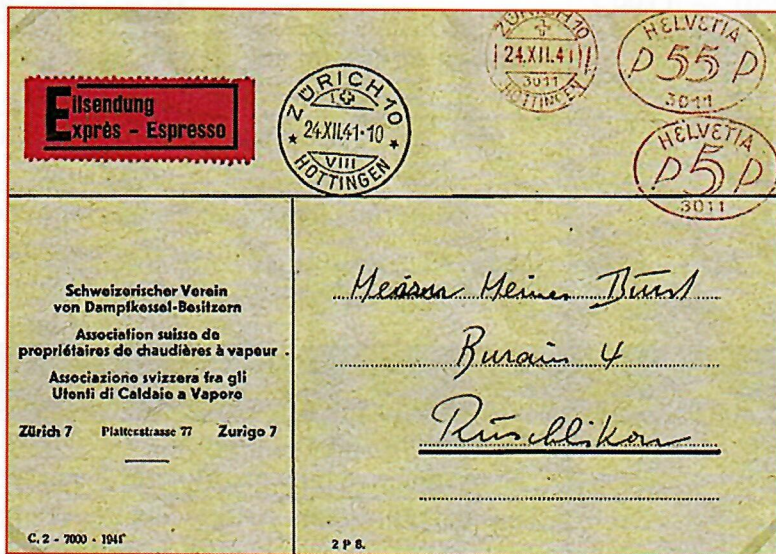 Eilsendung
Exprès - Espresso
ZÜRICH 10
24.XII.41-10
VIII
HOTTINGEN
ZÜRICH 10
24.XII.41
3011
HOTTINGEN
HELVETIA
P 55 P
3011
HELVETIA
P 5 P
3011
Schweizerischer Verein
von Dampfkessel-Besitzern
Association suisse de
propriétaires de chaudières à vapeur
Associazione svizzera fra gli
Utenti di Caldaie a Vapore
Zürich 7 Plattenstrasse 77 Zurigo 7
C. 2 - 7000 - 1941
Rüschlikon
2 P 8.